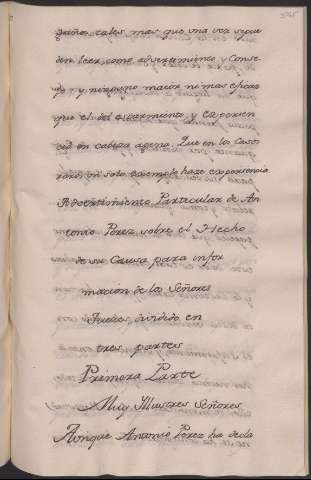 grãos, tales, mas que una vez se pue
den leer, como advertimiento, y Conse
jo, y ninguno maior ni mas eficaz
que el del escarmiento, y experien
cia en cabeza agena. Que en los casos
raros un solo exemplo haze experiencia
Advertimiento Particular de An
tonio Perez sobre el Hecho
de su Causa para infor
mación de los Señores
Juezes, dividido en
tres partes
Primera Parte
Muy Illustres Señores
Aunque Antonio Perez ha decla